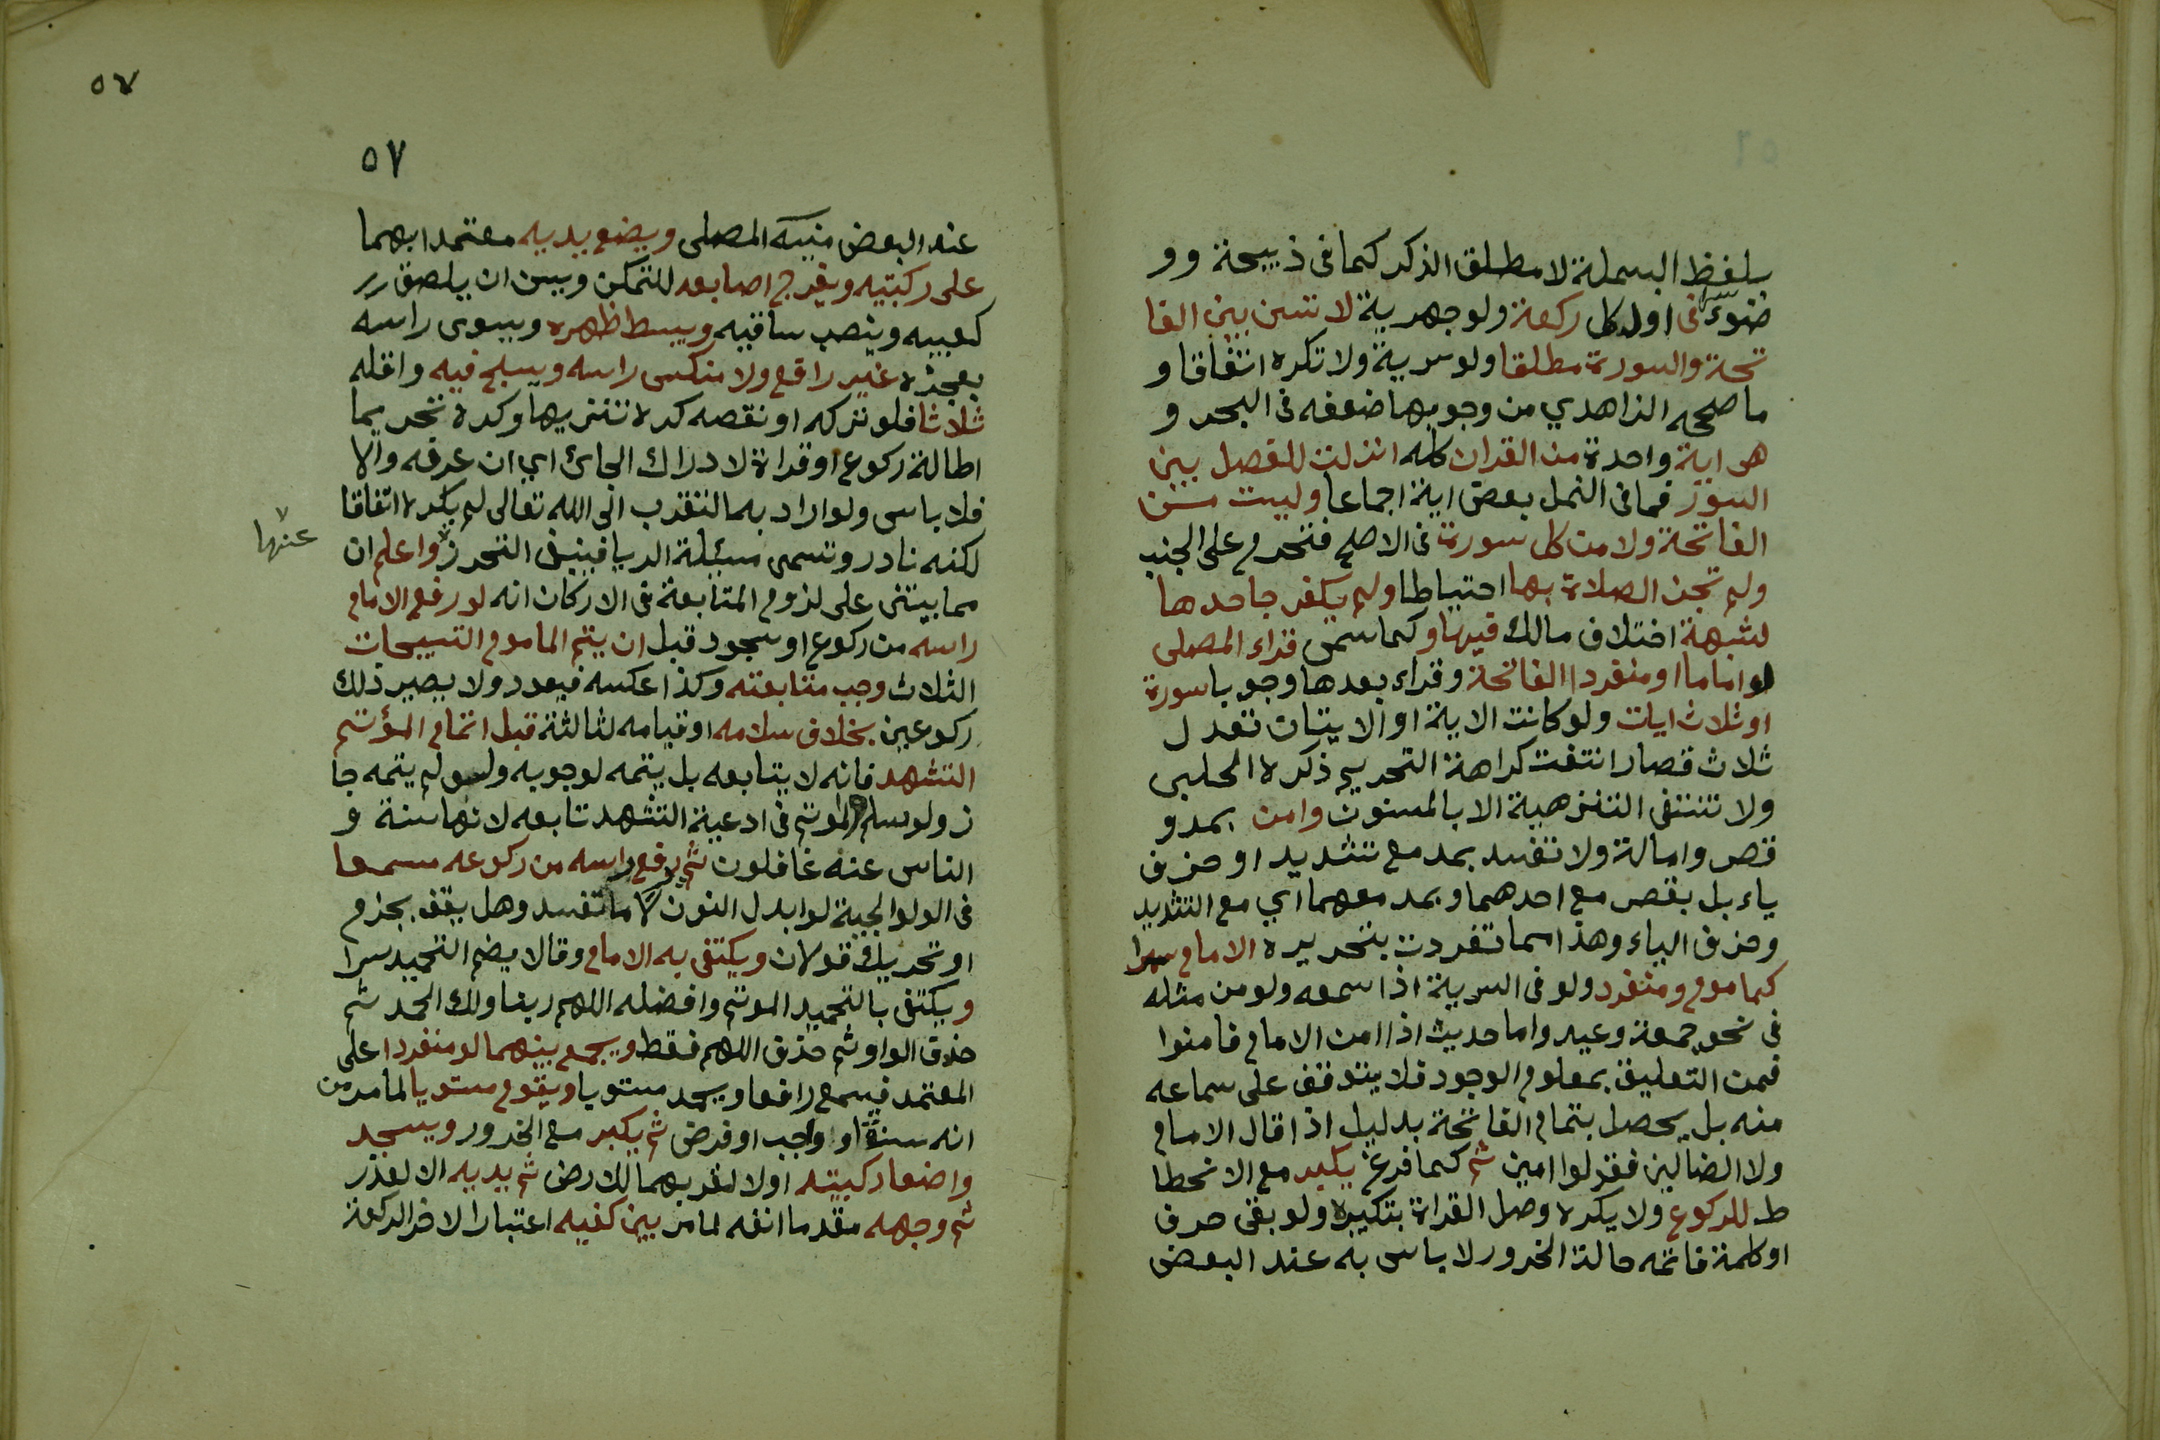 بلفظ البسملة لا مطلق الذكر كما فى ذبيحة وو
ضوء فى اول كل ركعة ولو جهرية لا تسن بين الفا
تحة والسورة مطلقا ولو سرية ولا تكره اتفاقا و
ما صححه الزاهدي من وجوبها ضعفه فى البحر و
هى اية واحدة من القران كله انزلت للفصل بين
السور فما فى النمل بعض اية اجماعا وليست من
الفاتحة ولا من كل سورة فى الاصح فتحرم على الجنب
ولم تجز الصلاة بها احتياطا ولم يكفر جاحدها
لشبهة اختلاف مالك فيها وكما سمى قراء المصلى
لو اماما او منفردا الفاتحة وقراء بعدها وجوبا سورة
او ثلاث ايات ولو كانت الاية او الايتان تعدل
ثلاث قصار انتفت كراهة التحريم ذكره الحلبي
ولا تنتفى التنزهية الا بالمسنون وامن بمد و
قصر وامالة ولا تفسد بمد مع تشديد او حذف
ياء بل بقصر مع احدهما وبمد معهما اي مع التشديد
وحذف الياء وهذا مما تفردت بتحريره الامام سرا
كماموم ومنفرد ولو فى السرية اذا سمعه ولو من مثله
فى نحو جمعة وعيد واما حديث اذا امن الامام فامنوا
فمن التعليق بمعلوم الوجود فلا يتوقف على سماعه
منه بل يحصل بتمام الفاتحة بدليل اذا قال الامام
ولا الضالين فقولوا امين ثم كما فرغ يكبر مع الانحطا
ط للركوع ولا يكره وصل القراة بتكبيره ولو بقى حرف
او كلمة فاتمه حالة الخرور لا باس به عند البعض
٥٧
٥٧
عند البعض منية المصلى ويضع يديه معتمدا بهما
على ركبتيه ويفرج اصابعه للتمكن ويسن ان يلصق
كعبيه وينصب ساقيه ويبسط ظهره ويسوى راسه
بعجزه غير رافع ولا منكس راسه ويسبح فيه واقله
ثلاثا فلو تركه او نقصه كره تنزيها وكره تحريما
اطالة ركوع او قراة لادراك الجائ اي ان عرفه والا
فلا باس ولو اراد به التقرب الى الله تعالى لم يكره اتفاقا
لكنه نادر وتسمى مسئلة الريا فينبغى التحرز واعلم ان
عنها
مما يبتنى على لزوم المتابعة فى الاركان انه لو رفع الامام
راسه من ركوع او سجود قبل ان يتم الماموم التسبيحات
الثلاث وجب متابعته وكذا عكسه فيعود ولا يصير ذلك
ركوعين بخلاف سلامه او قيامه لثالثة قبل اتمام المؤتم
التشهد فانه لا يتابعه بل يتمه لوجوبه ولو لم يتمه جا
ز ولو سلم والموتم فى ادعية التشهد تابعه لانها سنة و
الناس عنه غافلون ثم يرفع راسه من ركوعه مسمعا
فى الولوالجية لو ابدل النون لاما تفسد وهل يقف بجزم
او تحريك قولان ويكتفى به الامام وقالا يضم التحميد سرا
ويكتفى بالتحميد الموتم وافضله اللهم ربنا ولك الحمد ثم
حذف الواو ثم حذف اللهم فقط ويجمع بينهما لو منفردا على
المعتمد فيسمع رافعا ويحمد مستويا ويقوم مستويا لما مر من
انه سنة او واجب او فرض ثم يكبر مع الخرور ويسجد
واضعا ركبتيه اولا لقربهما للارض ثم يديه الا لعذر
ثم وجهه مقدما انفه لما مر بين كفيه اعتبارا لاخر الركعة